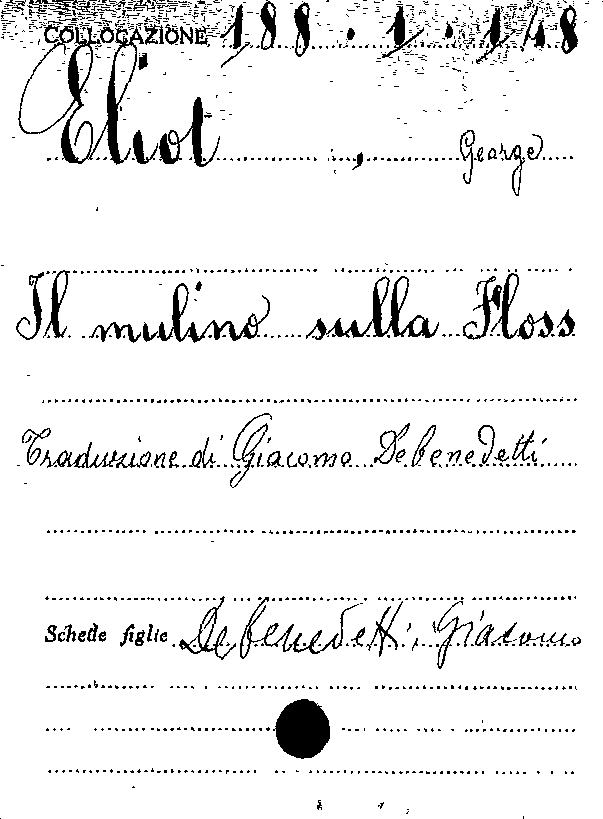 COLLOCAZIONE 188.1.148
Eliot, George
Il mulino sulla Floss
Traduzione di Giacomo Debenedetti
Schede figlie Debenedetti, Giacomo